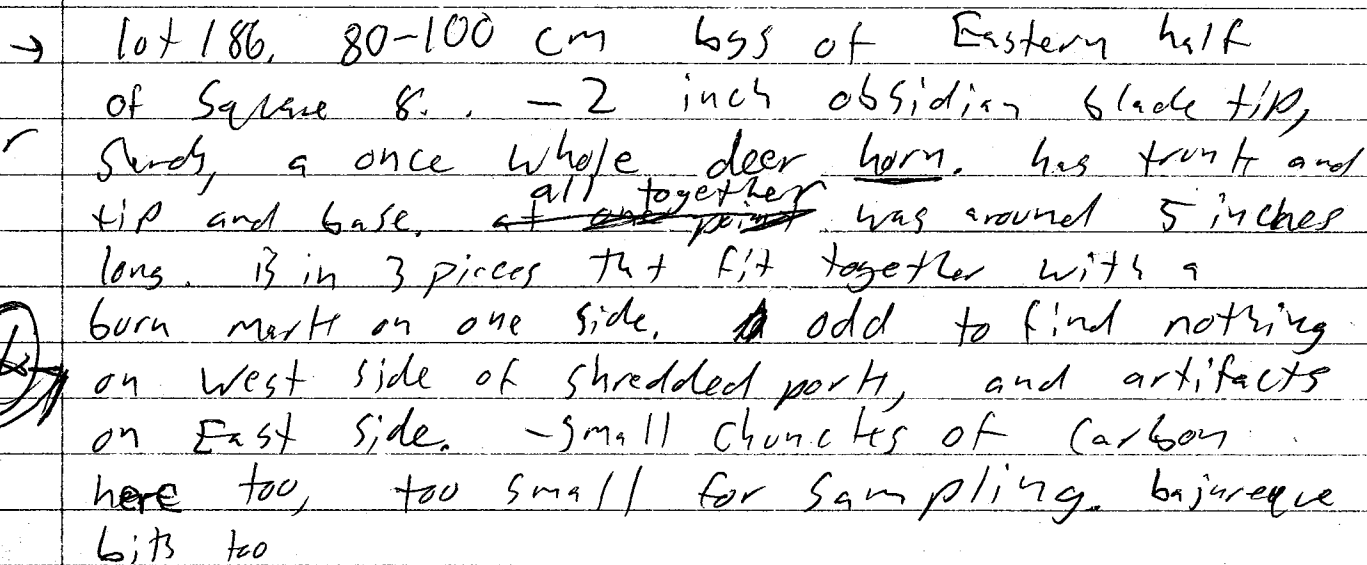 → lot 186. 80-100 cm bgs of Eastern half
of Square 8. . - 2 inch obsidian blade tip,
Sherds, a once whole deer horn. has trunk and
tip and base. all together was around 5 inches
long. Is in 3 pieces tht fit together with a
burn mark on one side. odd to find nothing
on West side of shredded pork, and artifacts
on East side. -Small chuncks of Carbon
here too, too small for sampling. bajareque
bits too